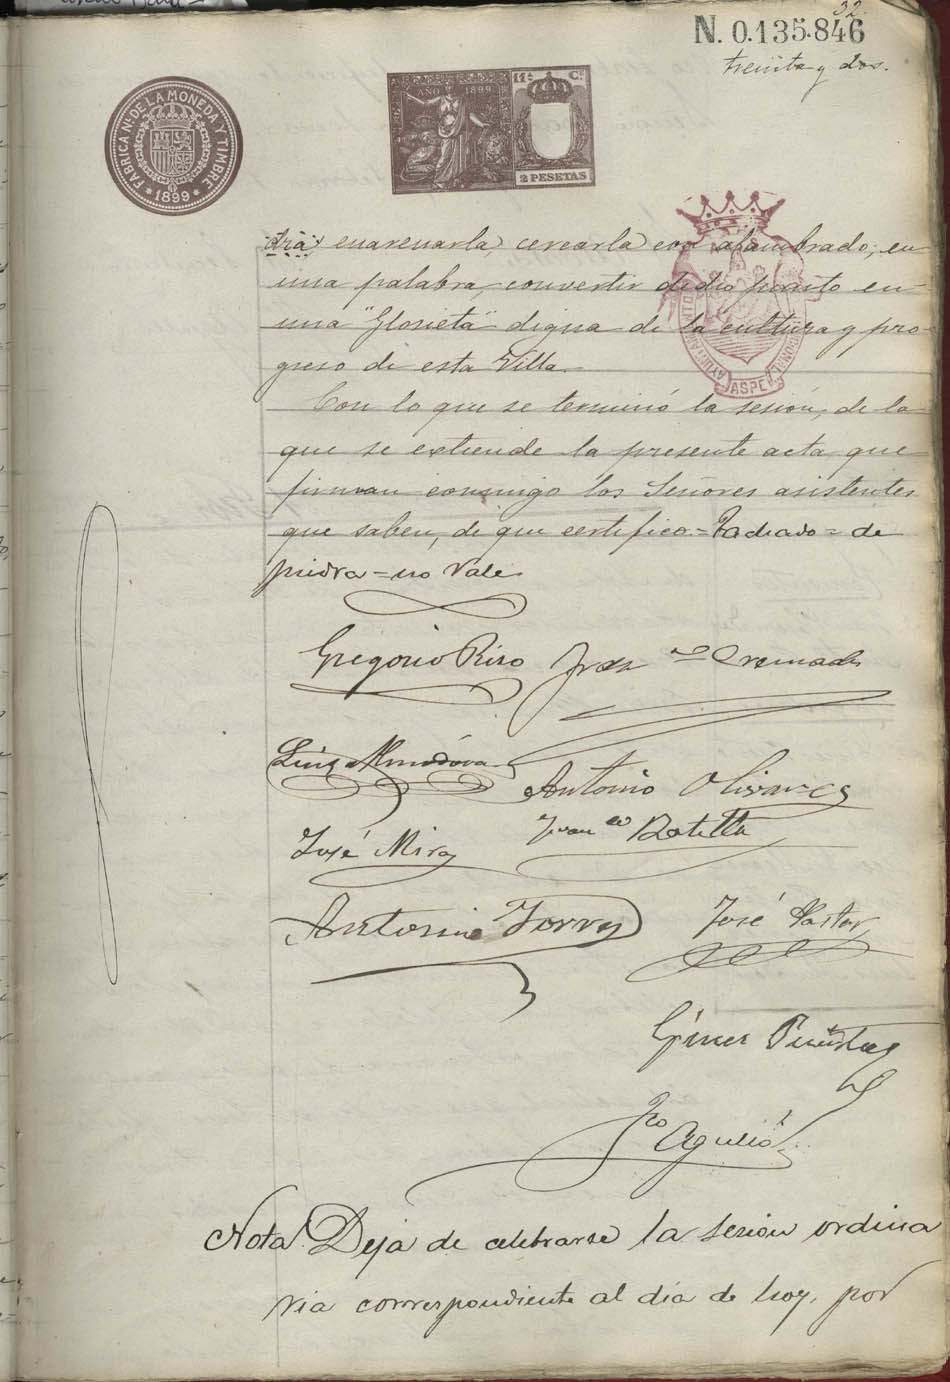 32.
N. 0.135.846
treinta y dos.
FABRICA Nl. DE LA MONEDA Y TIMBRE
* 1899 *
AÑO 1899
11ª Cª
2 PESETAS
enarenarla, cercarla con alambrado; en
una palabra, convertir dicho punto en
una "Glorieta" digna de la cultura y pro-
greso de esta Villa.
Con lo que se terminó la sesión, de la
que se extiende la presente acta que
firman conmigo los Señores asistentes
que saben, de que certifico = Tachado = de
piedra = no vale
ASPE
Gregorio Rizo
Cremades
Luis Almodóvar
Antonio Olivares
José Mira
Botella
Antonio Torres
José Pastor
Gines
Fco Agulió
Nota. Deja de celebrarse la sesion ordina
ria correspondiente al día de hoy, por